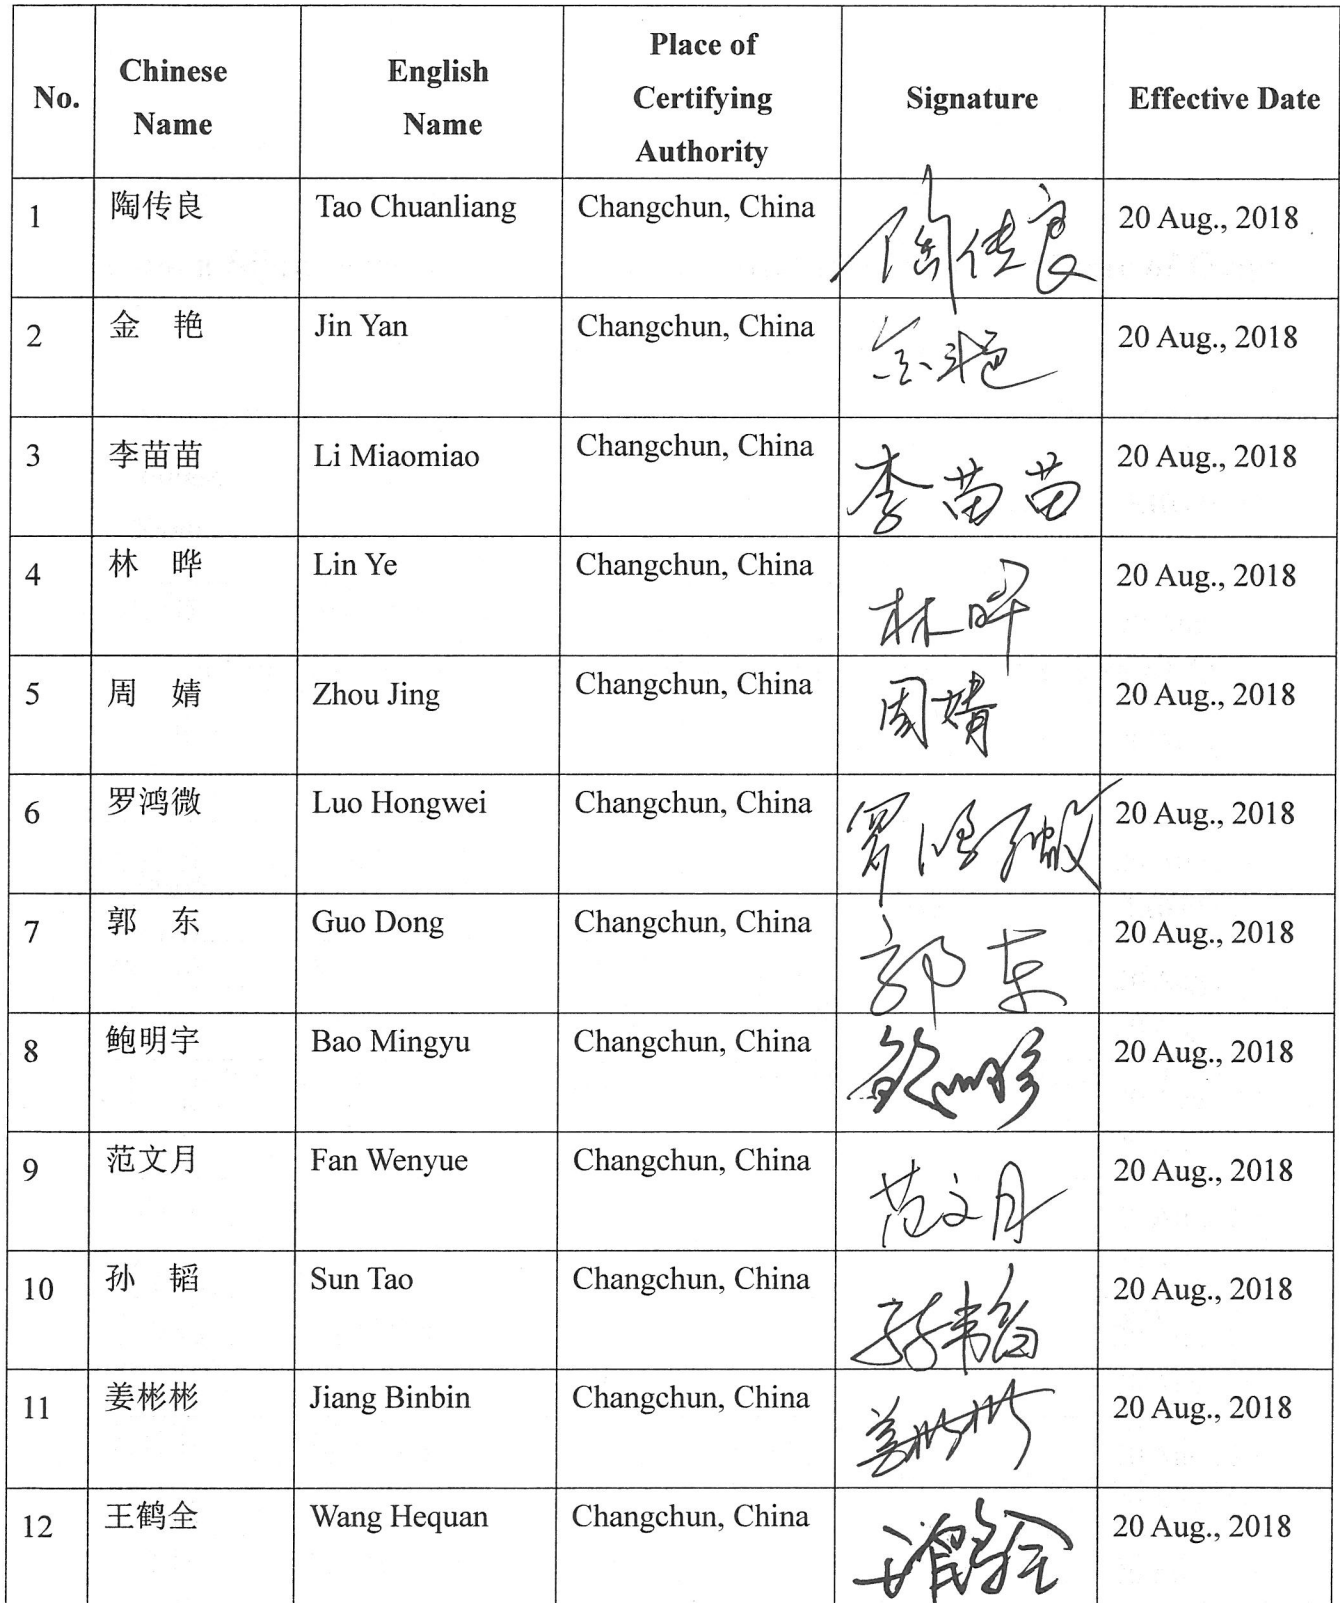 No.
Chinese
Name
English
Name
Place of
Certifying
Authority
Signature
Effective Date
1
陶传良
Tao Chuanliang
Changchun, China
陶传良
20 Aug., 2018
2
金 艳
Jin Yan
Changchun, China
金艳
20 Aug., 2018
3
李苗苗
Li Miaomiao
Changchun, China
李苗苗
20 Aug., 2018
4
林 晔
Lin Ye
Changchun, China
林晔
20 Aug., 2018
5
周 婧
Zhou Jing
Changchun, China
周婧
20 Aug., 2018
6
罗鸿微
Luo Hongwei
Changchun, China
罗鸿微
20 Aug., 2018
7
郭 东
Guo Dong
Changchun, China
郭东
20 Aug., 2018
8
鲍明宇
Bao Mingyu
Changchun, China
鲍明宇
20 Aug., 2018
9
范文月
Fan Wenyue
Changchun, China
范文月
20 Aug., 2018
10
孙 韬
Sun Tao
Changchun, China
孙韬
20 Aug., 2018
11
姜彬彬
Jiang Binbin
Changchun, China
姜彬彬
20 Aug., 2018
12
王鹤全
Wang Hequan
Changchun, China
王鹤全
20 Aug., 2018